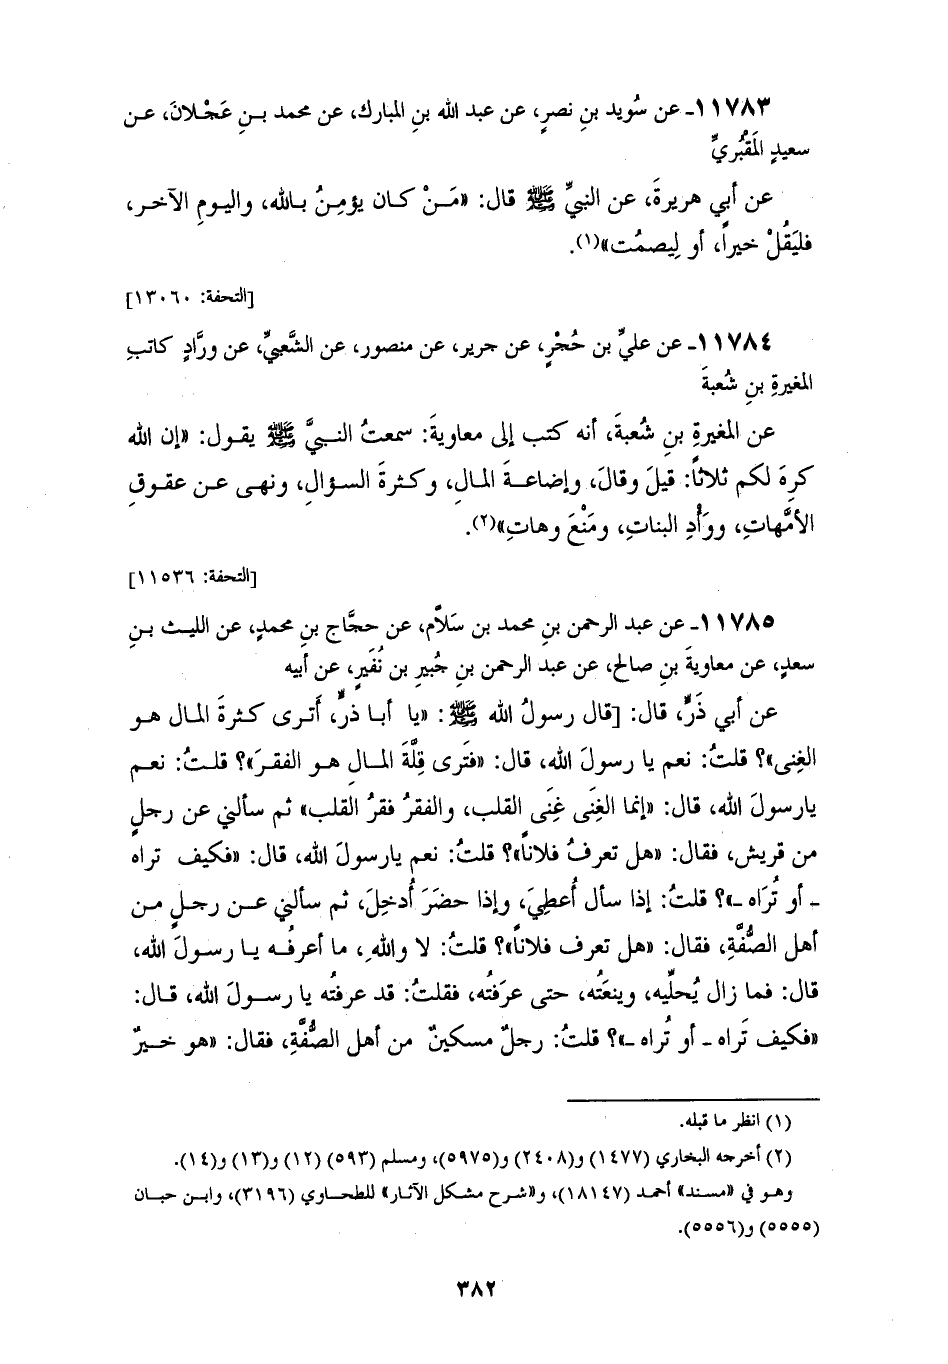 ١١٧٨٣ـ عن سُويد بنِ نصرٍ، عن عبد الله بنِ المبارك، عن محمد بـنِ عَجْـلانَ، عـن
سعيدٍ المَقْبُريِّ
عن أبي هريرةَ، عن النبيِّ ﷺ قال: «مَـنْ كـان يؤمِـنُ بـالله، واليـومِ الآخـر،
فليَقُلْ خيراً، أو لِيصمُت»(١).
[التحفة: ١٣٠٦٠]
١١٧٨٤ـ عن عليِّ بن حُجْرٍ، عن جرير، عن منصور، عن الشَّعبيِّ، عن ورَّادٍ كاتبِ
المغيرةِ بنِ شُعبةَ
عن المغيرةِ بنِ شُعبةَ، أنه كتب إلى معاويةَ: سمعتُ النـبيَّ ﷺ يقـول: «إن الله
كرِهَ لكم ثلاثاً: قيلَ وقالَ، وإضاعـةَ المـالِ، وكـثرةَ السـؤالِ، ونهـى عـن عقـوقِ
الأمَّهاتِ، ووَأْدِ البناتِ، ومَنْعَ وهاتِ»(٢).
[التحفة: ١١٥٣٦]
١١٧٨٥ـ عن عبد الرحمن بنِ محمد بن سَلاَّم، عن حجَّاج بنِ محمدٍ، عن الليـث بـنِ
سعدٍ، عن معاويةَ بنِ صالح، عن عبد الرحمن بنِ جُبيرِ بن نُفَيرٍ، عن أبيه
عن أبي ذَرٍّ، قال: [قال رسولُ الله ﷺ: «يا أبـا ذرٍّ، أَتـرى كـثرةَ المـال هـو
الغِنى»؟ قلتُ: نعم يا رسولَ الله، قال: «فتَرى قِلَّةَ المـالِ هـو الفقـرَ»؟ قلـتُ: نعـم
يارسولَ الله، قال: «إنما الغِنَى غِنَى القلب، والفقرُ فقرُ القلب» ثم سألني عن رجلٍ
من قريش، فقال: «هل تعرفُ فلاناً»؟ قلتُ: نعم يارسولَ الله، قال: «فكيف تراه
ـ أو تُرَاه ـ»؟ قلتُ: إذا سأل أُعطِيَ، وإذا حضَرَ أُدخِلَ، ثم سألني عـن رجـلٍ مـن
أهل الصُّفَّةِ، فقال: «هل تعرف فلاناً»؟ قلتُ: لا واللهِ، ما أعرفُـه يـا رسـولَ الله،
قال: فما زال يُحلِّيه، وينعَتُه، حتى عرَفتُه، فقلتُ: قد عرفتُه يا رسـولَ الله، قـال:
«فكيف تَراه ـ أو تُراه ـ»؟ قلتُ: رجلٌ مسكينٌ من أهل الصُّفَّةِ، فقال: «هو خـيرٌ
(١) انظر ما قبله.
(٢) أخرجه البخاري (١٤٧٧) و(٢٤٠٨) و(٥٩٧٥)، ومسلم (٥٩٣) (١٢) و(١٣) و(١٤).
وهـو في «مسند» أحمد (١٨١٤٧)، و«شرح مشكل الآثار» للطحاوي (٣١٩٦)، وابـن حبـان
(٥٥٥٥) و(٥٥٥٦).
٣٨٢